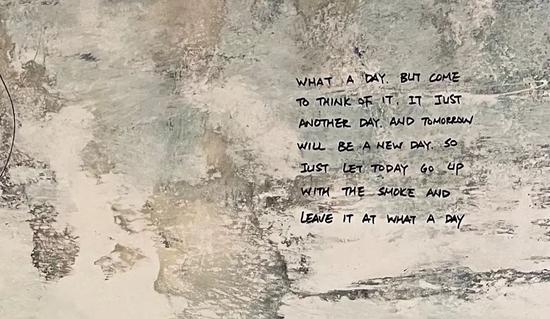 WHAT A DAY. BUT COME
TO THINK OF IT. IT JUST
ANOTHER DAY. AND TOMORROW
WILL BE A NEW DAY. SO
JUST LET TODAY GO UP
WITH THE SMOKE AND
LEAVE IT AT WHAT A DAY